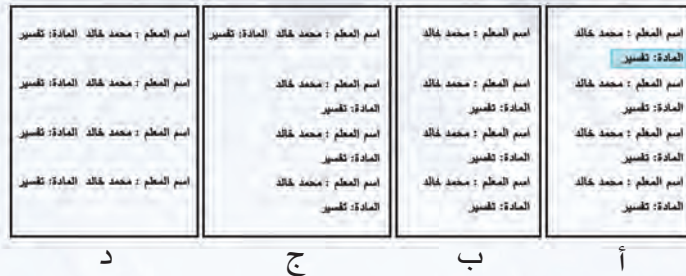 اسم المعلم : محمد خالد
المادة: تفسير
اسم المعلم : محمد خالد
المادة: تفسير
اسم المعلم : محمد خالد
المادة: تفسير
اسم المعلم : محمد خالد
المادة: تفسير
أ
اسم المعلم : محمد خالد
اسم المعلم : محمد خالد
المادة: تفسير
اسم المعلم : محمد خالد
المادة: تفسير
اسم المعلم : محمد خالد
المادة: تفسير
ب
اسم المعلم : محمد خالد المادة: تفسير
اسم المعلم : محمد خالد
المادة: تفسير
اسم المعلم : محمد خالد
المادة: تفسير
اسم المعلم : محمد خالد
المادة: تفسير
ج
اسم المعلم : محمد خالد المادة: تفسير
اسم المعلم : محمد خالد المادة: تفسير
اسم المعلم : محمد خالد المادة: تفسير
اسم المعلم : محمد خالد المادة: تفسير
د